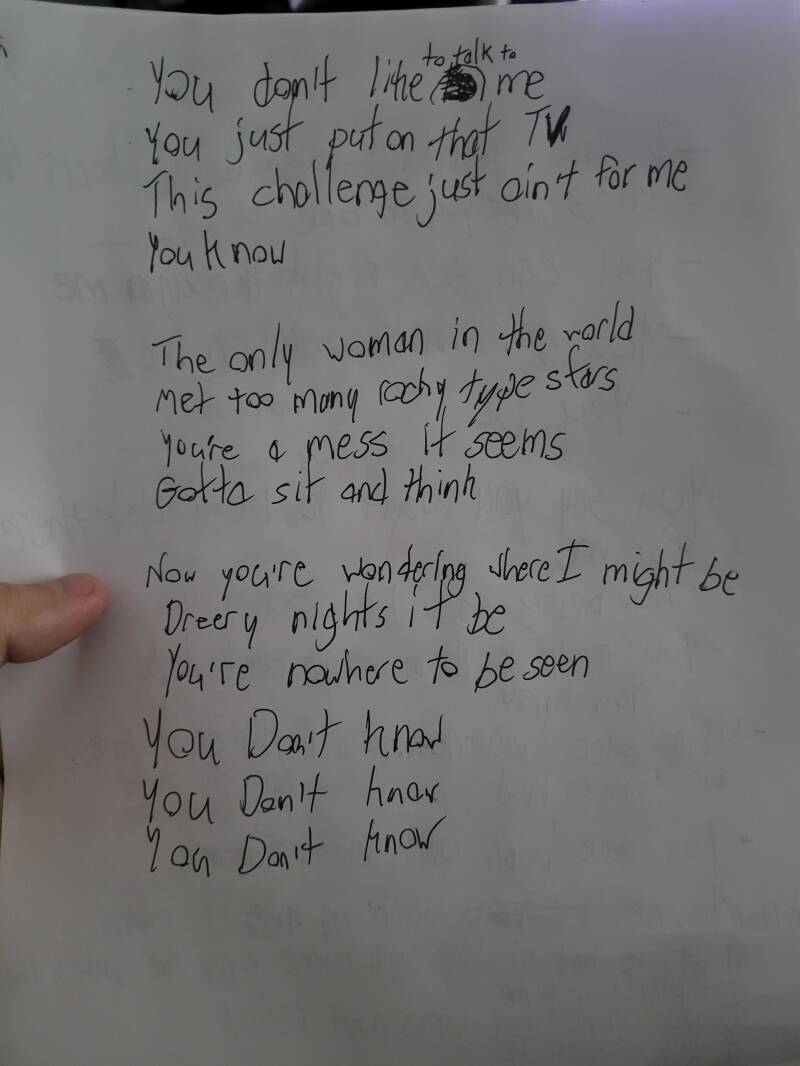 You don't like to talk to me
You just put on that TV
This challenge just ain't for me
You know
The only woman in the world
Met too many rocky type stars
You're a mess it seems
Gotta sit and think
Now you're wondering where I might be
Dreery nights it be
You're nowhere to be seen
You Don't know
You Don't know
You Don't know